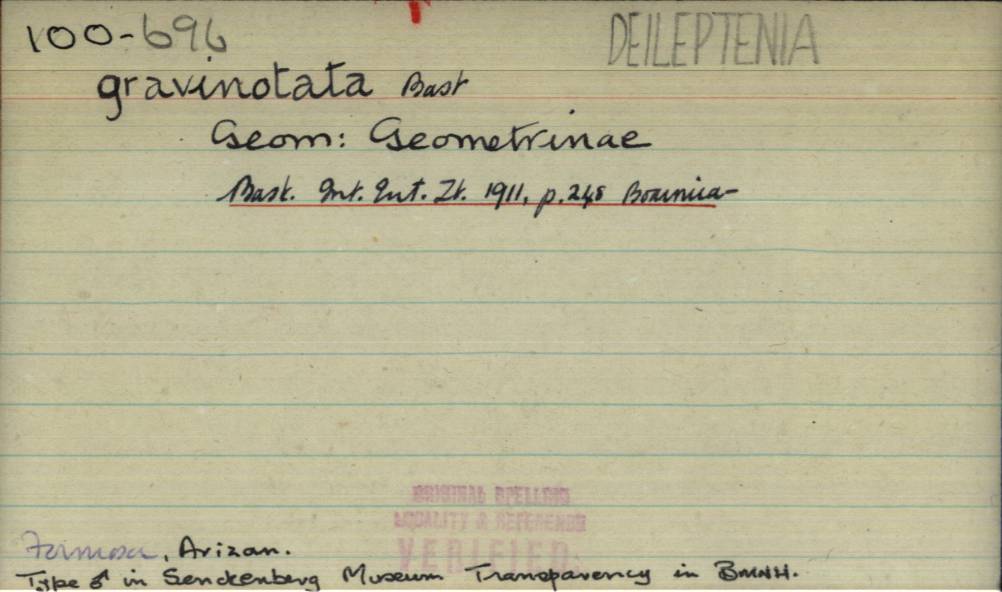 100-696 DEILEPTENIA
gravinotata Bast
Geom: Geometrinae
Bast. Int. Ent. Zt. 1911, p. 248 Boarmia-
ORIGINAL SPELLING
LOCALITY & REFERENCE
VERIFIED.
Formosa, Arizan.
Type ♂ in Senckenberg Museum Transparency in BMNH.